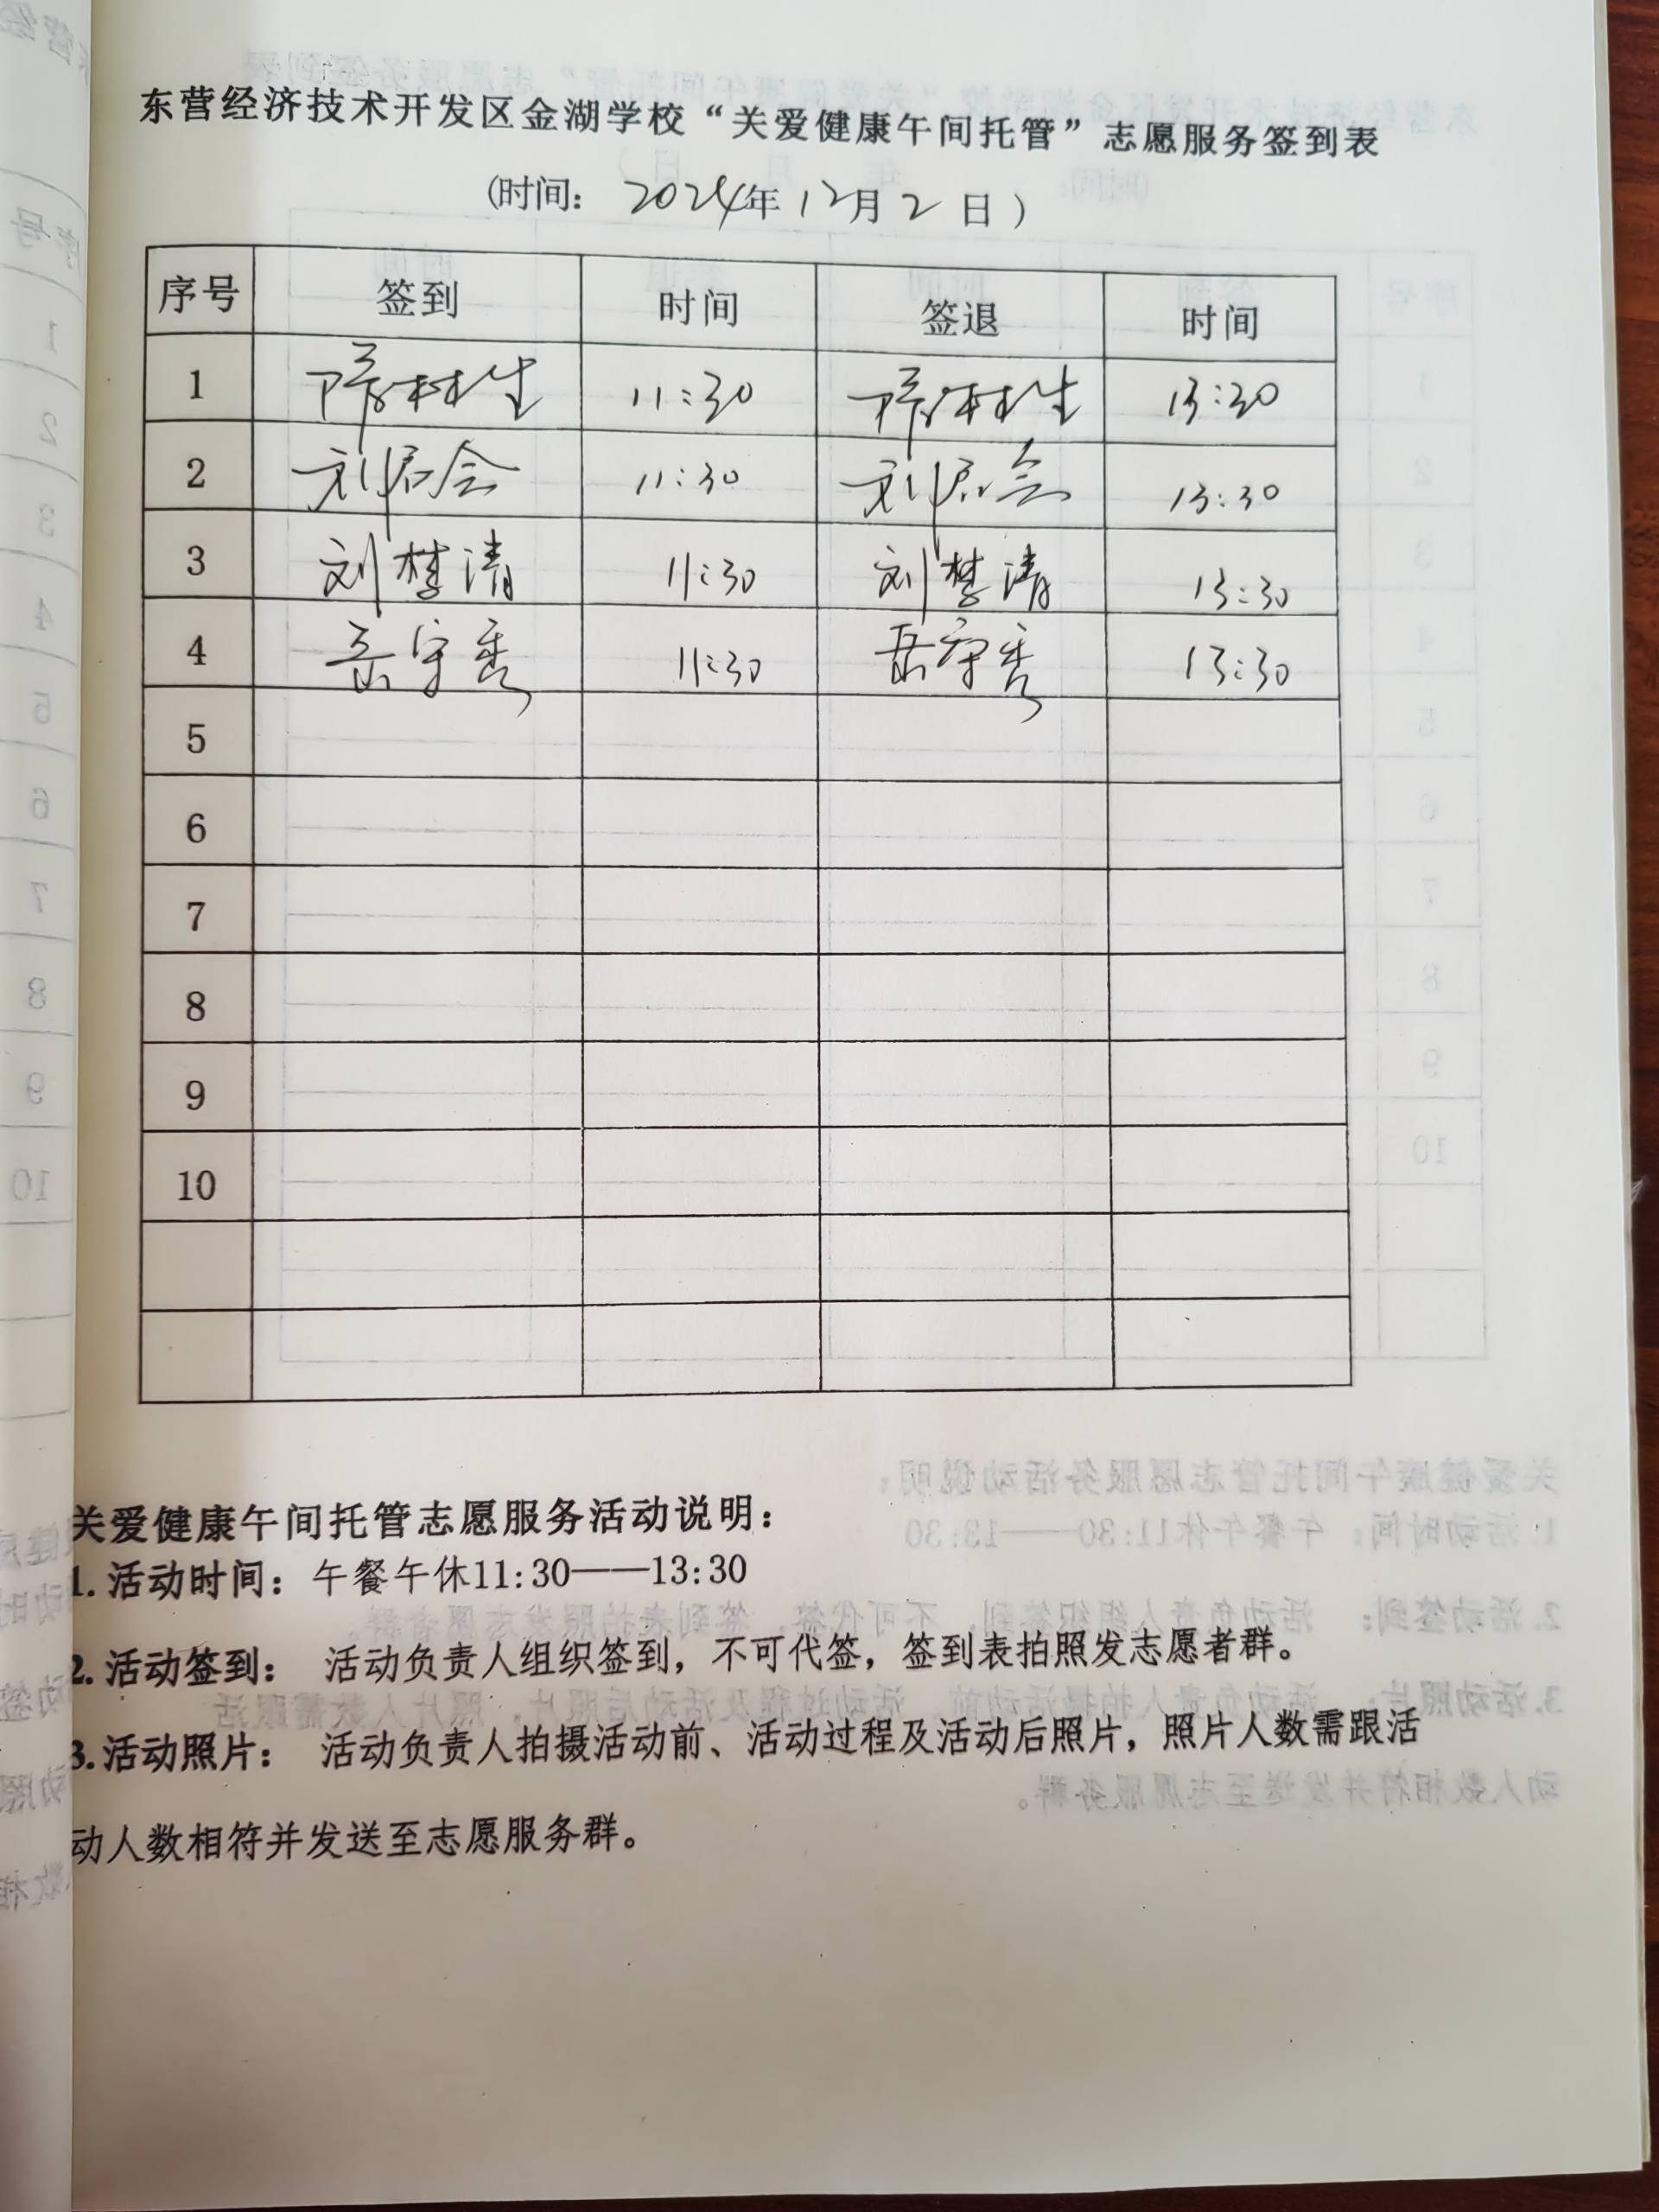 东营经济技术开发区金湖学校“关爱健康午间托管”志愿服务签到表
(时间: 2024年12月2日)
序号 签到 时间 签退 时间
1 11:30 13:30
2 刘启会 11:30 刘启会 13:30
3 刘梦清 11:30 刘梦清 13:30
4 岳守秀 11:30 岳守秀 13:30
5
6
7
8
9
10
关爱健康午间托管志愿服务活动说明：
1. 活动时间：午餐午休11:30——13:30
2. 活动签到： 活动负责人组织签到，不可代签，签到表拍照发志愿者群。
3. 活动照片： 活动负责人拍摄活动前、活动过程及活动后照片，照片人数需跟活
动人数相符并发送至志愿服务群。